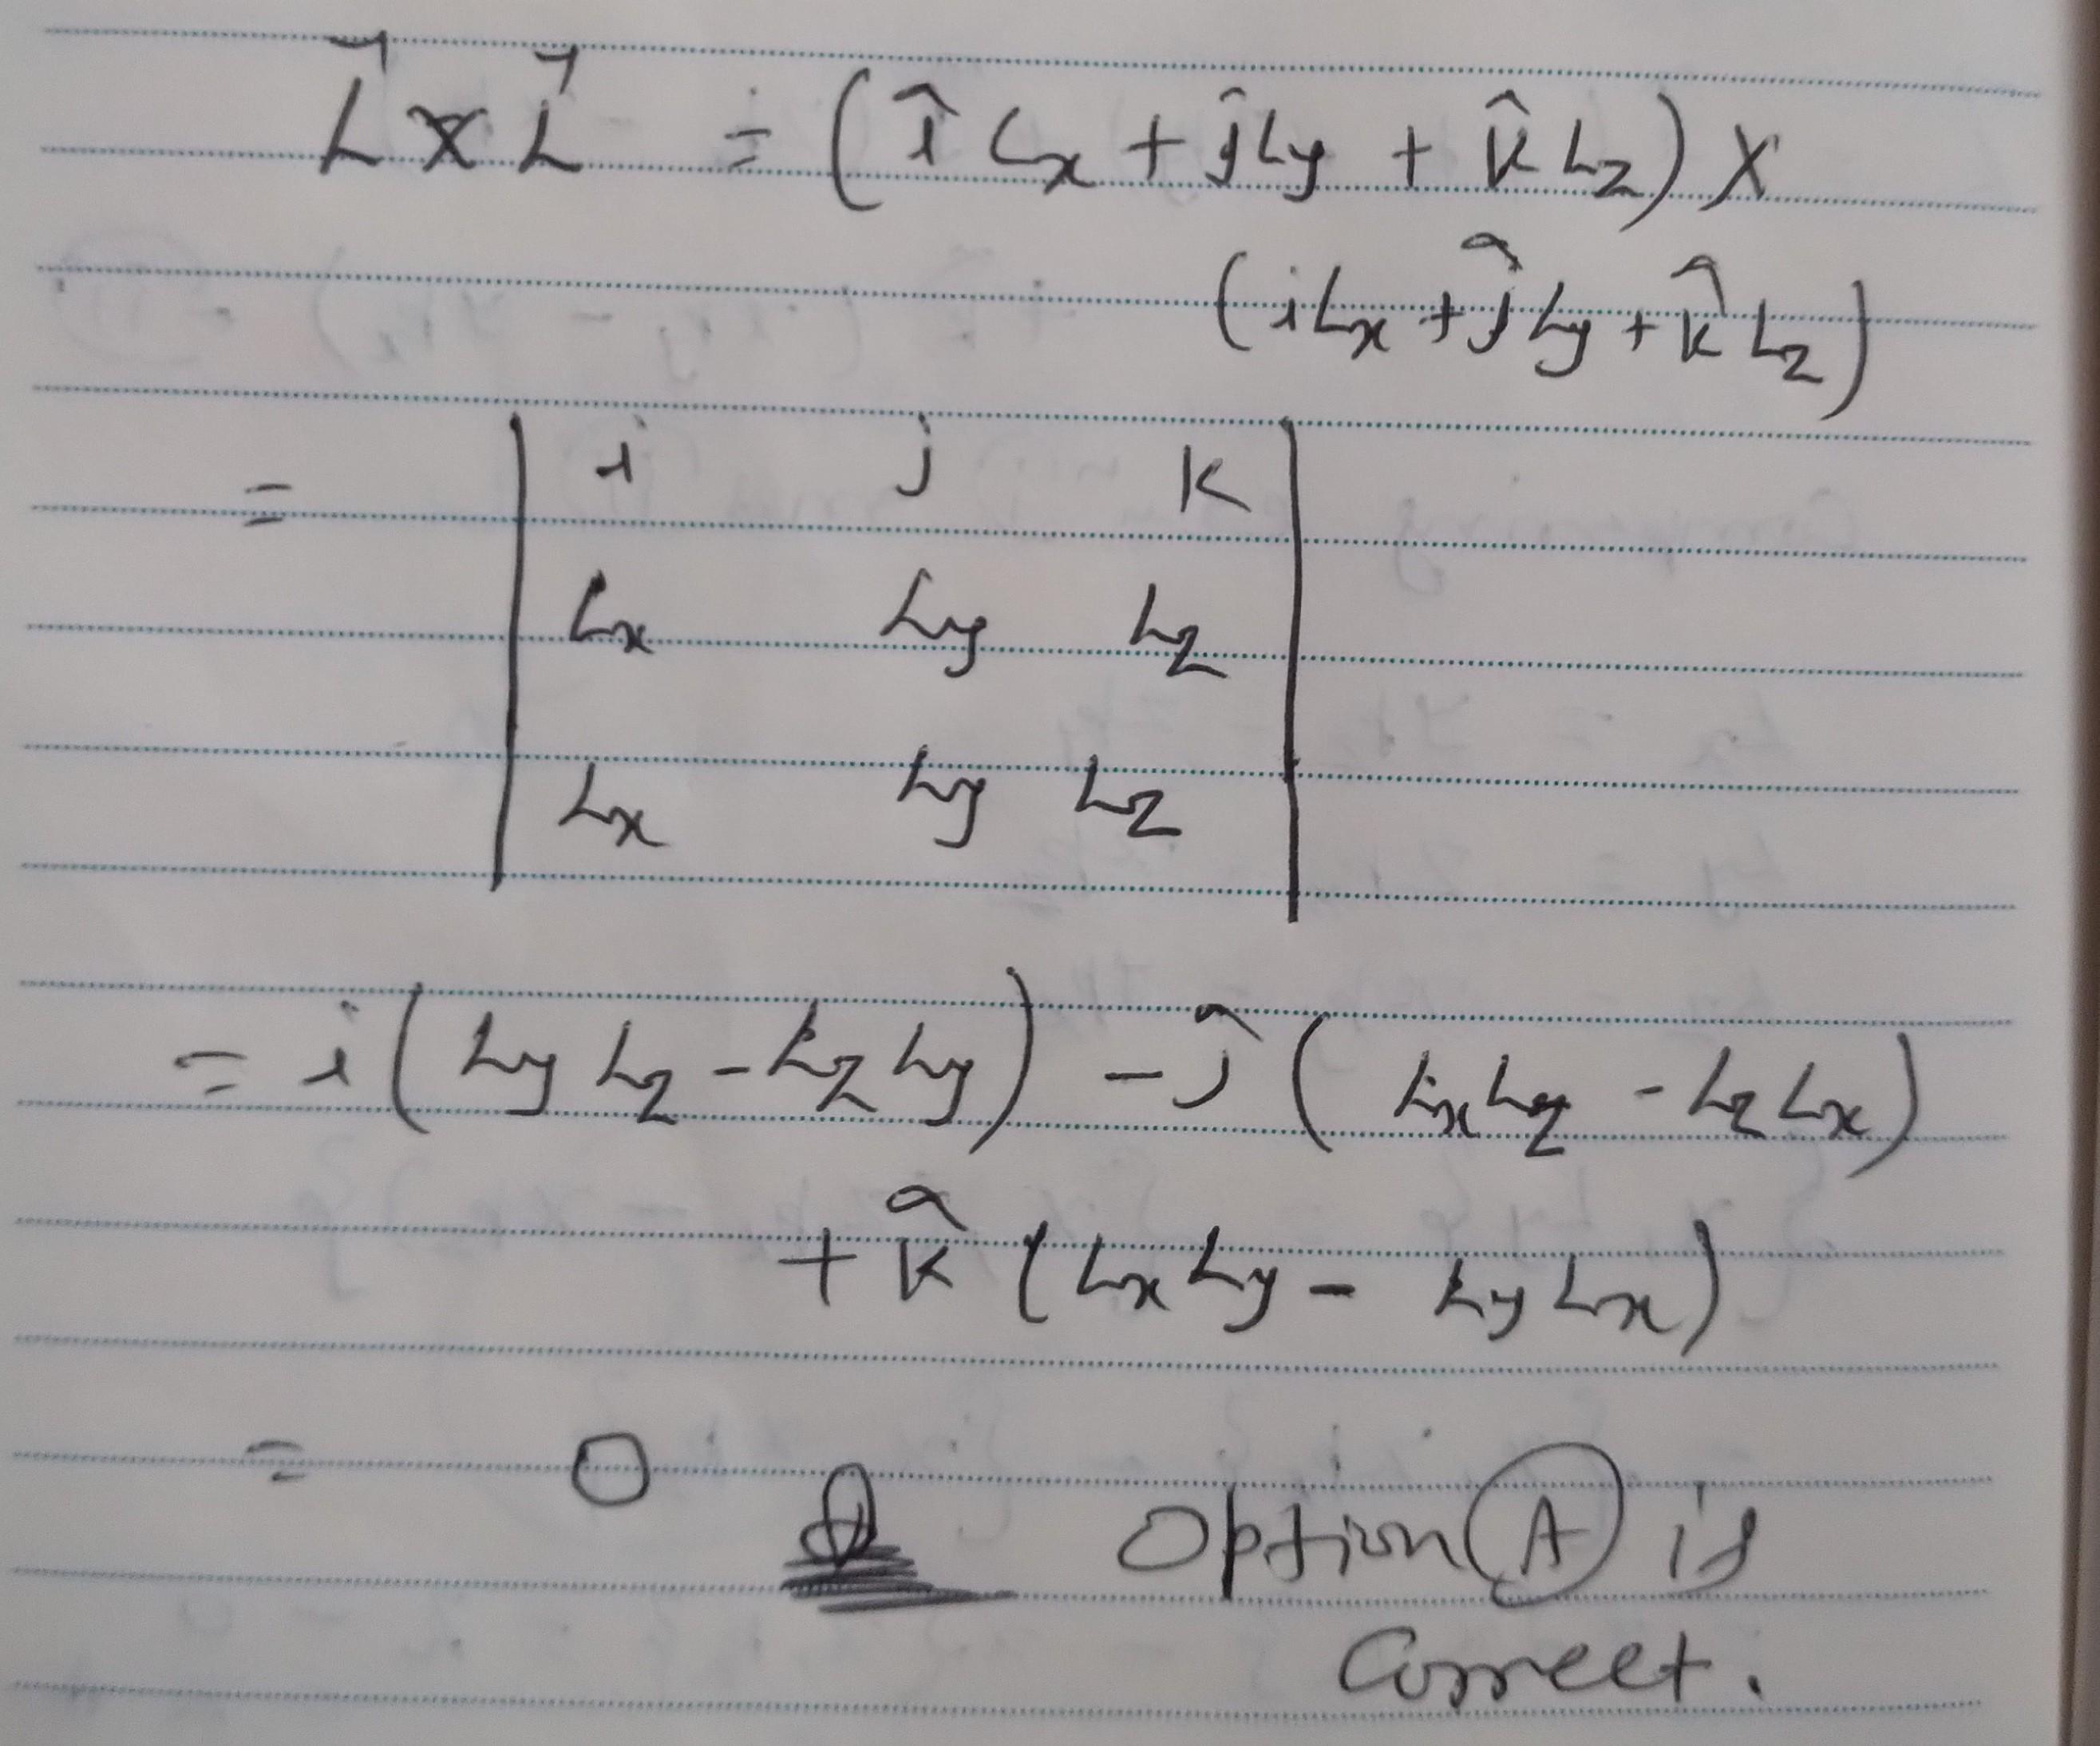 L⃗ x L⃗ = (î Lx + ĵ Ly + k̂ Lz) X
(i Lx + ĵ Ly + k̂ Lz)
= | i j k |
| Lx Ly Lz |
| Lx Ly Lz |
= i (Ly Lz - Lz Ly) - ĵ (Lx Lz - Lz Lx)
+ k̂ (Lx Ly - Ly Lx)
= 0 Option (A) is
Correct.